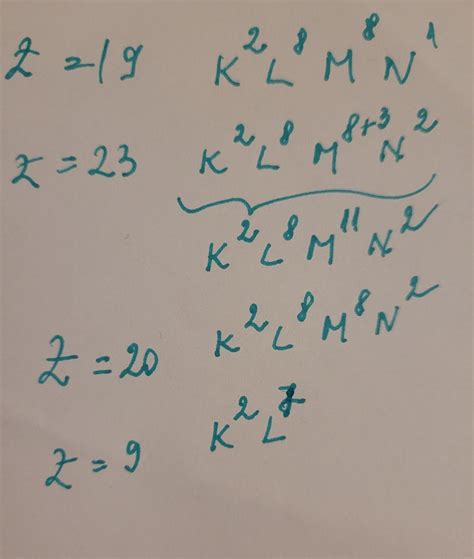 Z = 19 K² L⁸ M⁸ N¹
Z = 23 K² L⁸ M⁸⁺³ N²
K² L⁸ M¹¹ N²
Z = 20 K² L⁸ M⁸ N²
Z = 9 K² L⁷